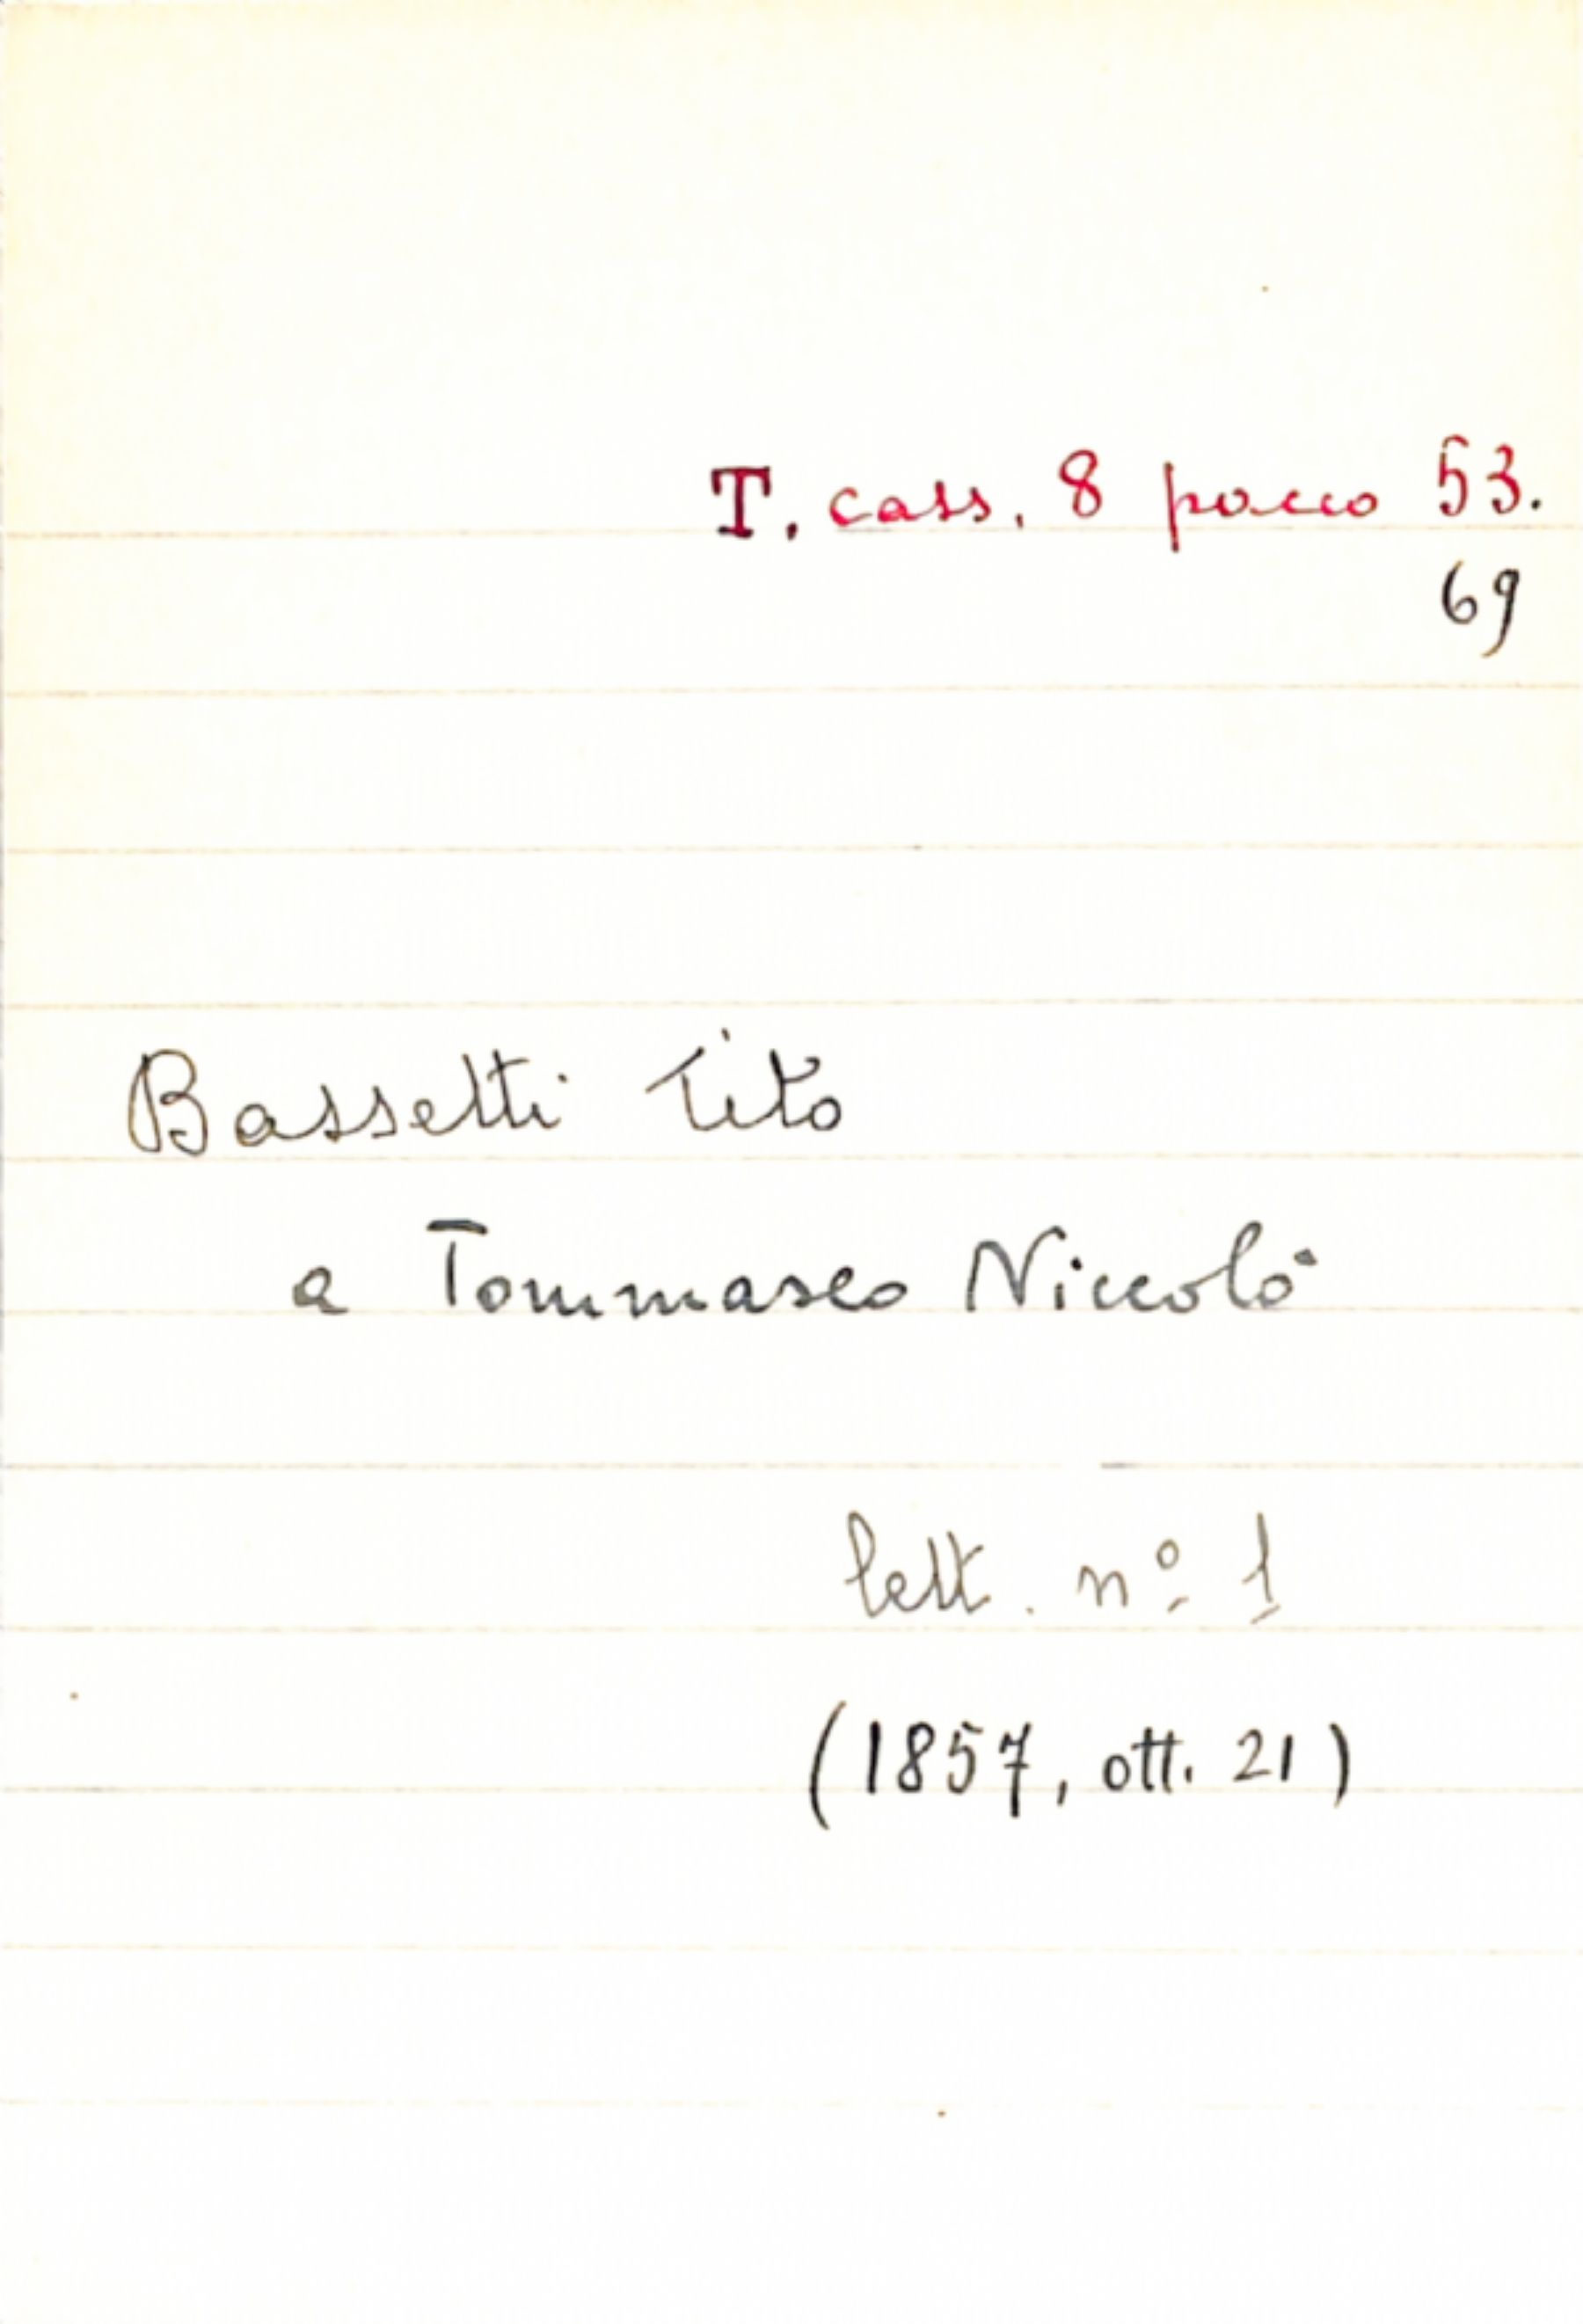 T. cass. 8 pacco 53.
69
Bassetti Tito
a Tommaseo Niccolò
lett. nº 1
(1857, ott. 21)